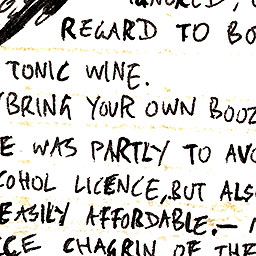 REGARD TO BO
TONIC WINE.
BRING YOUR OWN BOOZ
E WAS PARTLY TO AVO
COHOL LICENCE, BUT ALS
EASILY AFFORDABLE. —
CHAGRIN OF THE